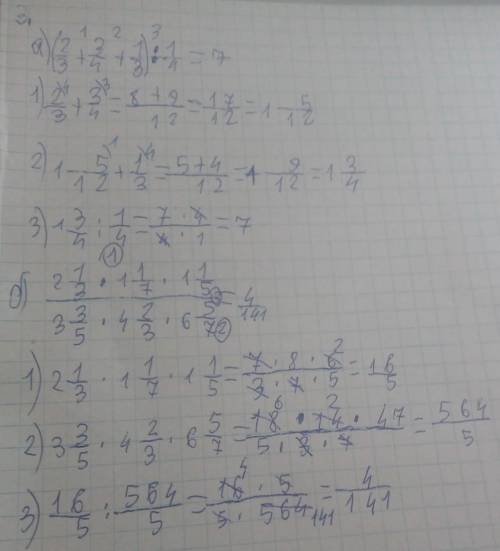 3.
а) (2/3 + 3/4 + 1/3) : 1/4 = 7
1) 2/3 + 3/4 = 8+9/12 = 17/12 = 1 5/12
2) 1 5/12 + 1/3 = 5+4/12 = 1 9/12 = 1 3/4
3) 1 3/4 : 1/4 = 7·4/4·1 = 7
б) 2 1/3 · 1 1/7 · 1 1/5 / 3 3/5 · 4 2/3 · 6 5/7 = 4/141
1) 2 1/3 · 1 1/7 · 1 1/5 = 7·8·6/3·7·5 = 16/5
2) 3 3/5 · 4 2/3 · 6 5/7 = 18·14·47/5·3·7 = 564/5
3) 16/5 : 564/5 = 16·5/5·564 = 4/141